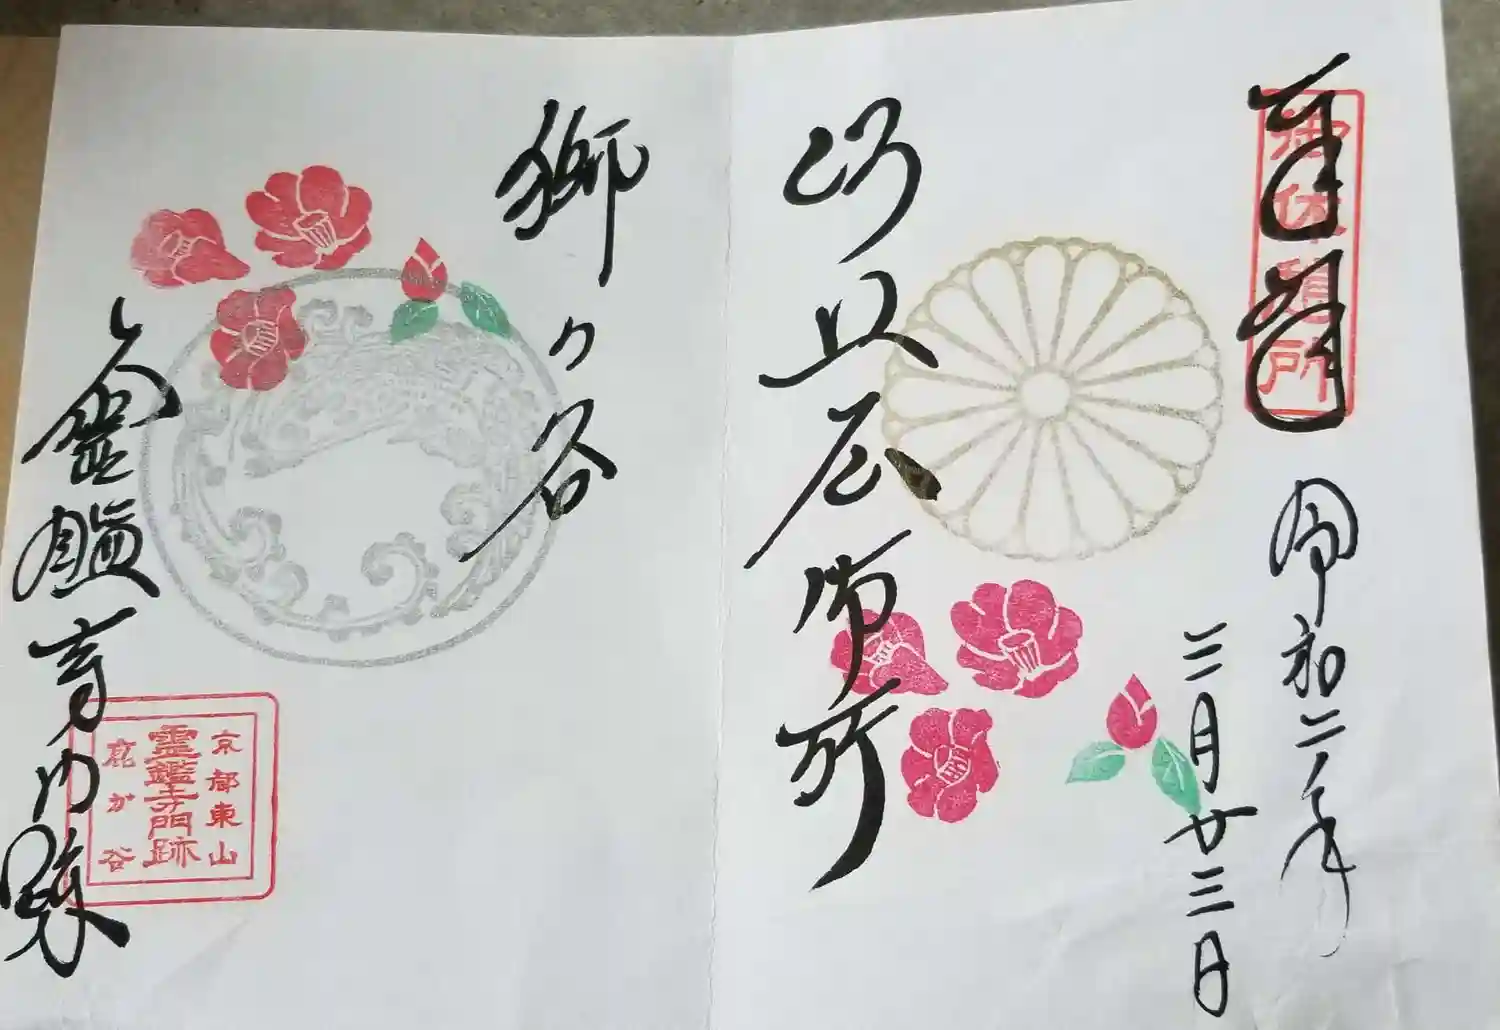 奉拝
御休息所
令和二年
三月廿三日
比丘尼御所
鹿ヶ谷
霊鑑寺門跡
京都東山
霊鑑寺門跡
鹿か谷